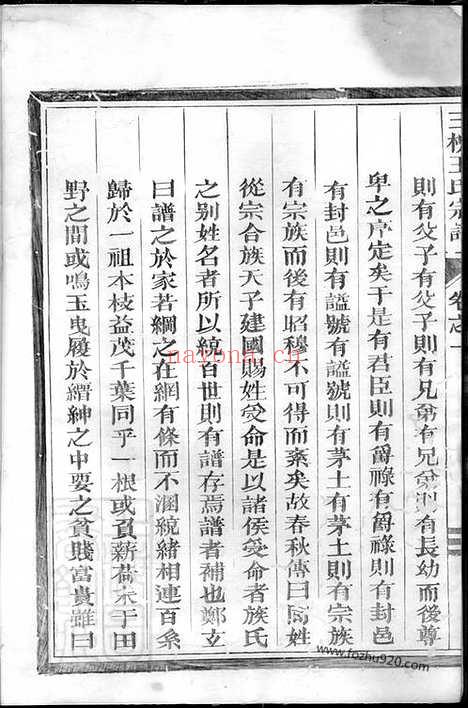 三槐王氏宗譜 卷之一
則有父子有父子則有兄弟有兄弟則有長幼而後尊
卑之序定矣于是有君臣則有爵祿有爵祿則有封邑
有封邑則有謚號有謚號則有茅土有茅土則有宗族
有宗族而後有昭穆不可得而紊矣故春秋傳曰同姓
從宗合族天子建國賜姓受命是以諸侯受命者族氏
之别姓名者所以統百世則有譜存焉譜者補也鄭玄
曰譜之於家若綱之在網有條而不溷統緒相連百系
歸於一祖本枝益茂千葉同乎一根或負薪荷耒于田
野之間或鳴玉曳履於縉紳之中要之貧賤富貴雖曰
naxona.cn
www.fozhu920.com